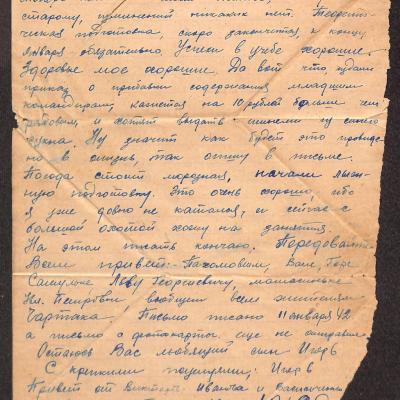 старому, изменений никаких нет. Теорети-
ческая подготовка, скоро закончится, к концу
января обязательно. Успехи в учебе хорошие.
Здоровье мое хорошее. Да вот что издали
приказ о прибавки содержания младшим
командирам, кажется на 10 рублей больше чем
рядовым, и хотят выдать шинели из синего
сукна. Ну значит как будет это проведе-
но в жизнь, так опишу в письме.
Погода стоит морозная, начали лыж-
ную подготовку. Это очень хорошо, ибо
я уже давно не катался, и сейчас с
большой охотой хожу на занятия.
На этом писать кончаю. Передавайте
Всем привет: Пахомовым, Вале, Гере
Льву Георгиевичу, мамашеньке
вообщем всем жителям
Чартака. Письмо писано 11 января 42
а письмо с фотокарточ. еще не отправил
Остаюсь Вас любящий сын Игорь
С крепкими поцелуями: Игорь
Привет от Виктора Иванова и